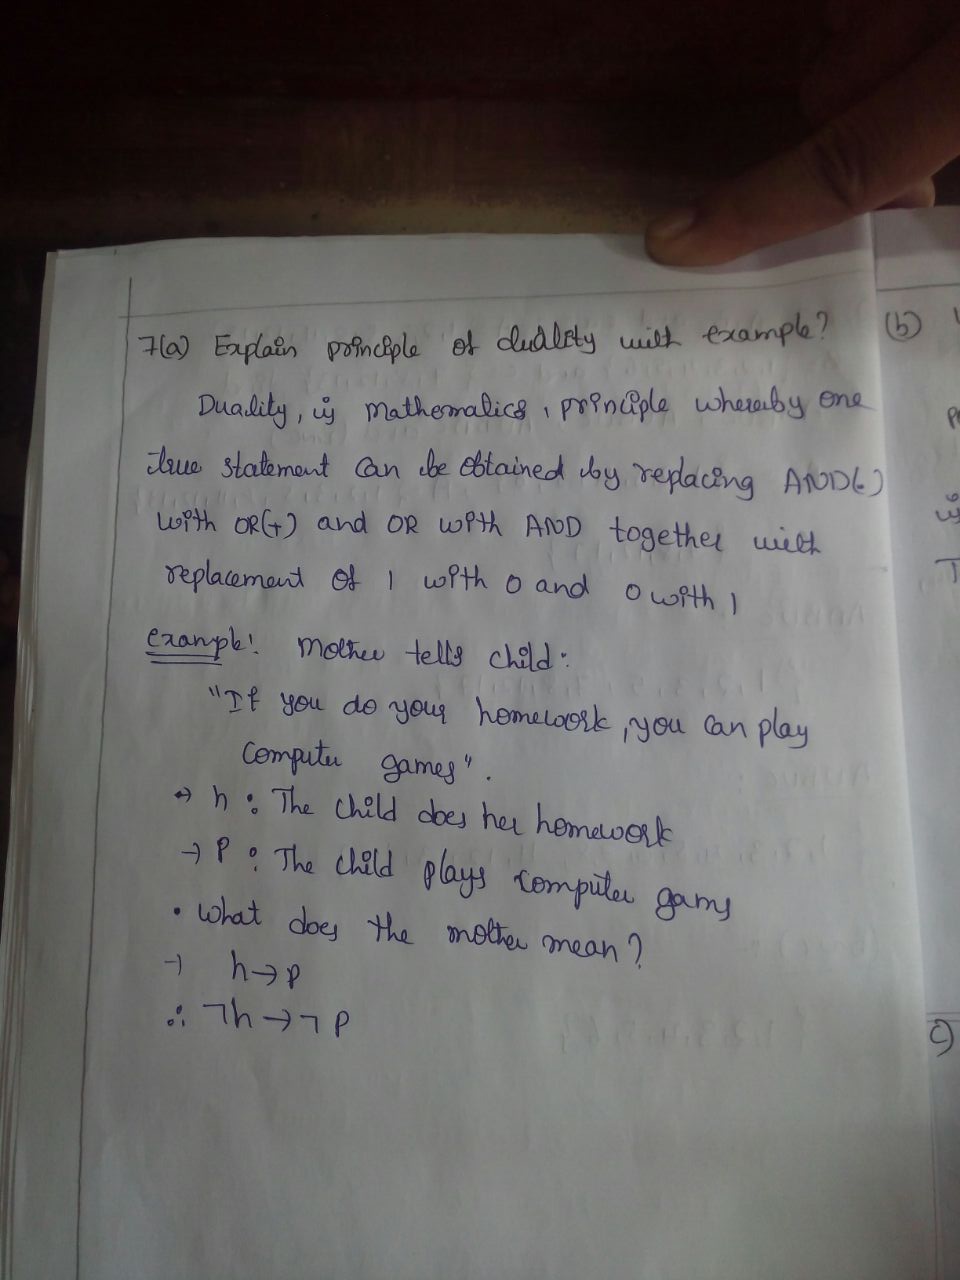 7(a) Explain principle of duality with example? (b)
Duality, in mathematics, principle whereby one
true statement can be obtained by replacing AND(.)
with OR(+) and OR with AND together with
replacement of 1 with 0 and 0 with 1
example: Mother tells child:
"If you do your homework, you can play
computer games".
→ h : The child does her homework
→ P : The child plays computer games
• What does the mother mean?
→ h → p
∴ ¬h → ¬p
c)